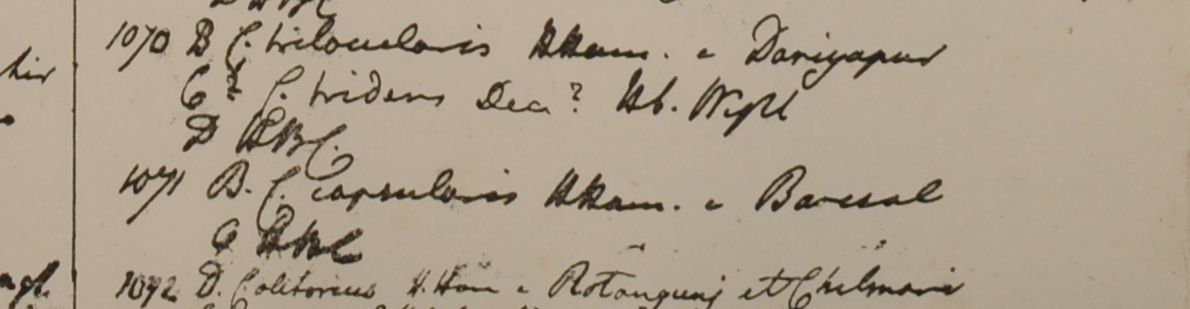 1070 B C. trilocularis HHam. e Dariyapur
C? C. tridens Dec? Hb. Wight
D HBC.
1071 B. C. capsularis HHam. e Baresal
C HBC
1072 D. C olitorius H.Ham e Rotangunj et Chilmari